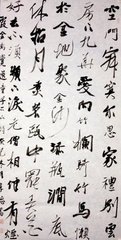 空門寂寞尔思家禮別雲
房下九華愛向竹欄騎竹馬
於金地聚金沙瓶澗底
休招月烹茗甌中罷弄花
好去不須頻下淚老僧相伴有煙
霞